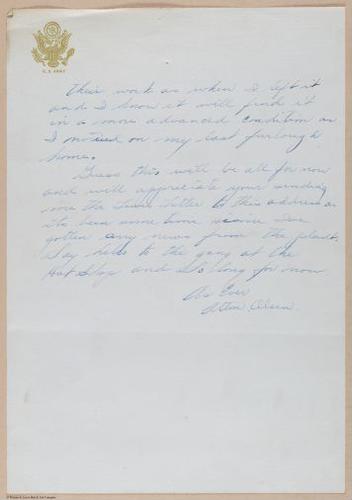 U.S. ARMY
their work as when I left it
and I know it will find it
in a more advanced condition as
I noticed on my last furlough
home.
Guess this will be all for now
and will appreciate your sending
me the letter to this address as
its been some time since I've
gotten any news from the plant.
Say hello to the gang at the
Hot Shop and so long for now
As Ever
Olsen